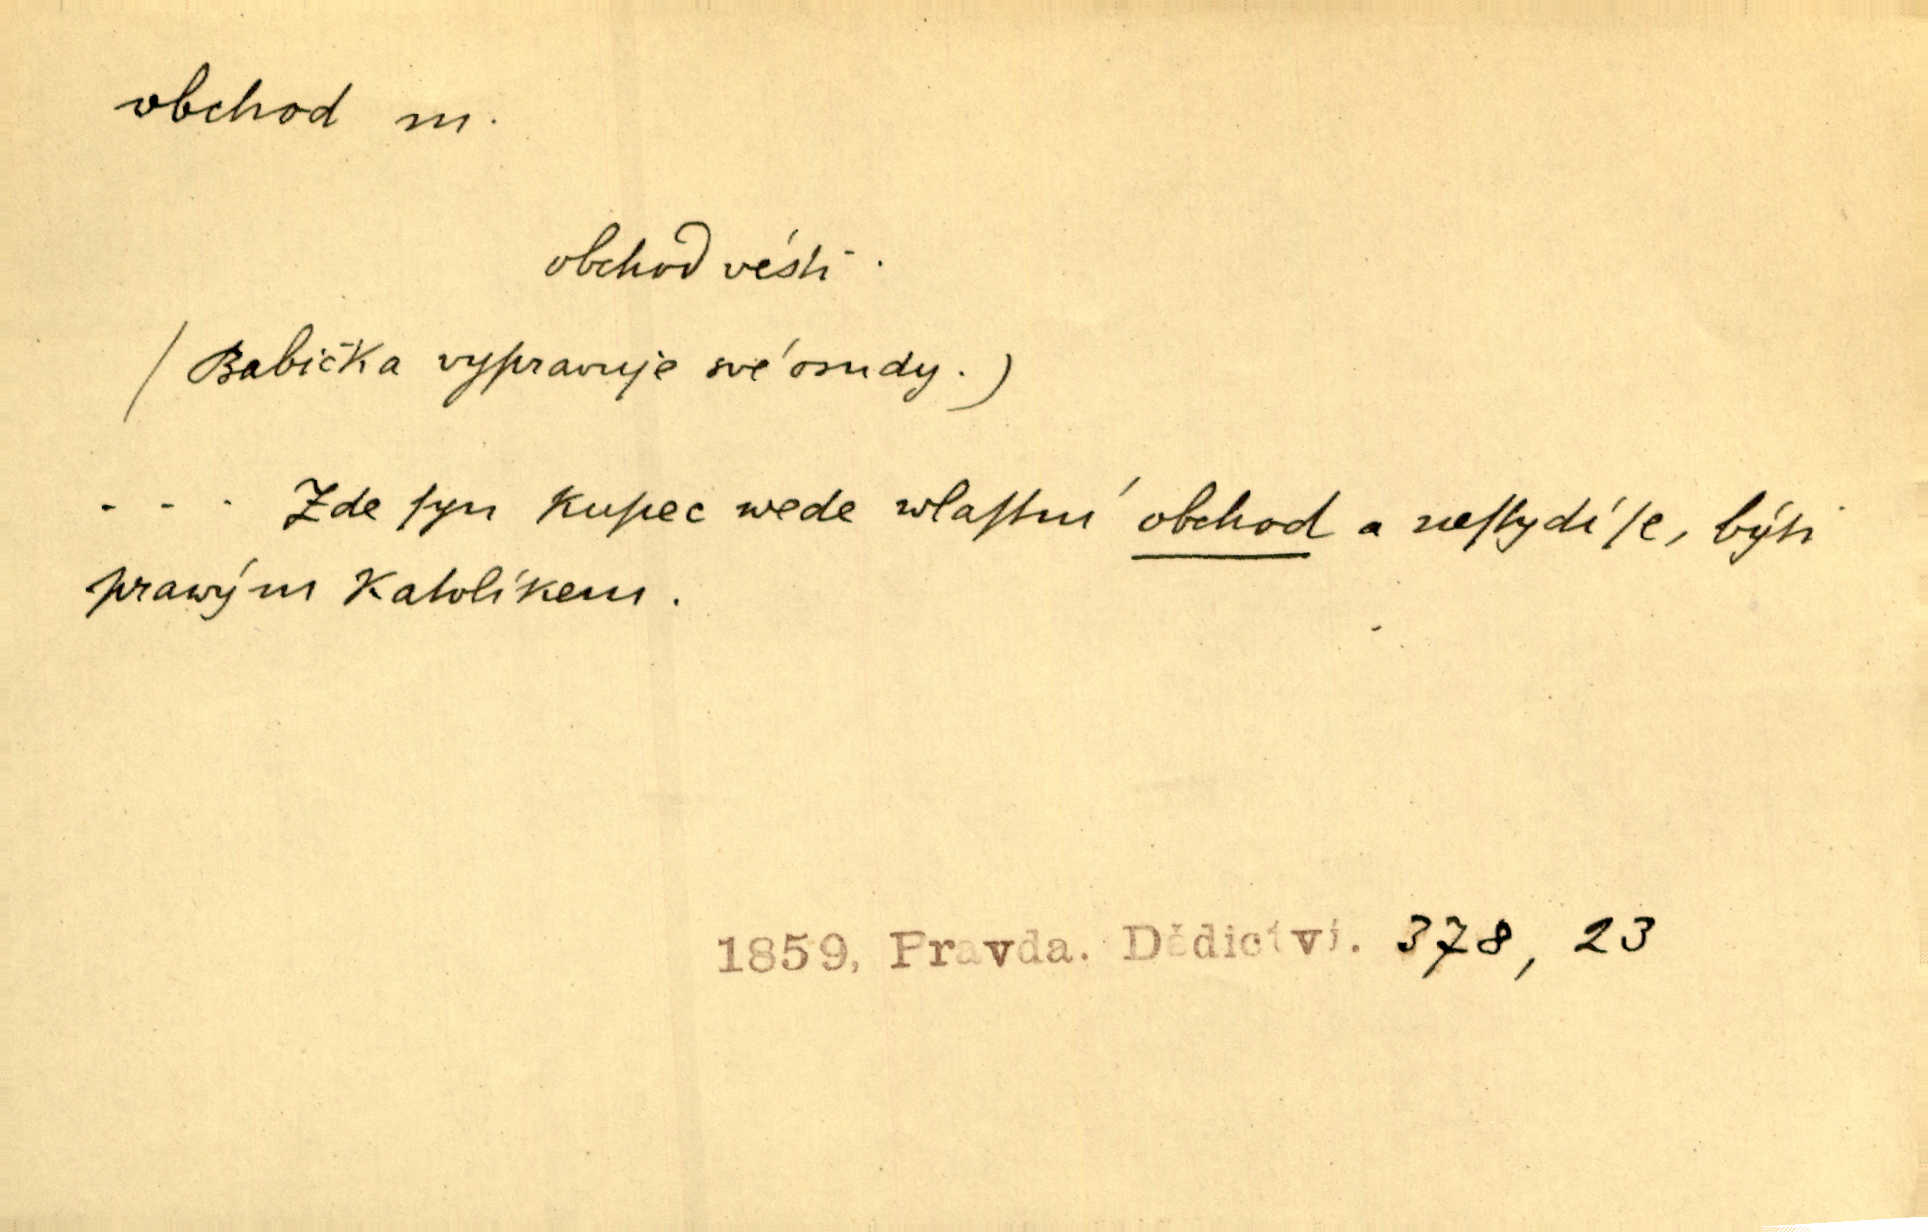 obchod m.
obchod vésti.
(Babička vypravuje své osudy.)
- - - Zde ſyn kupec wede wlaſtní obchod a neſtydí ſe, býti
prawým katolíkem.
1859, Pravda. Dědictví. 378, 23